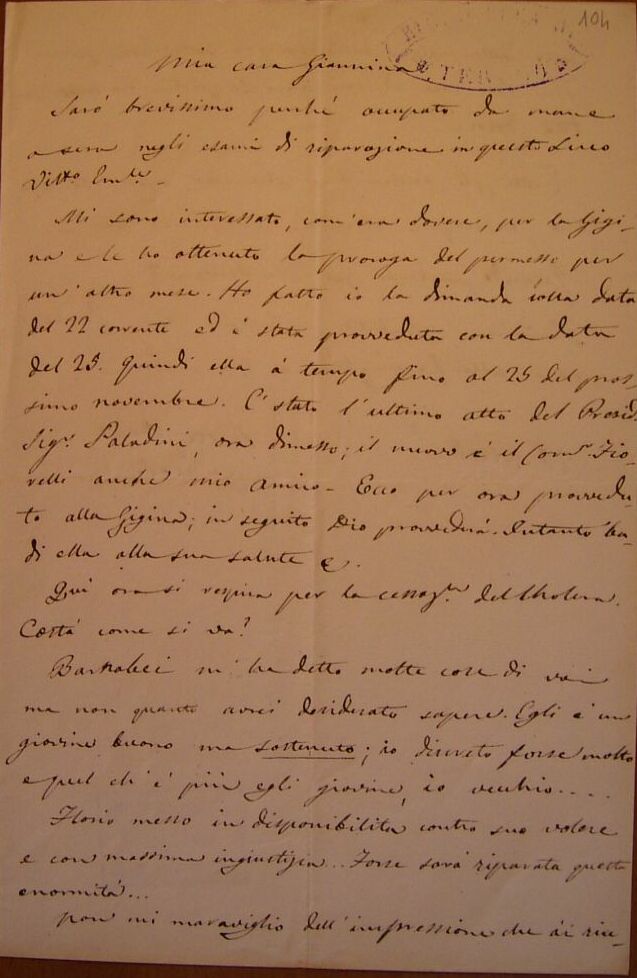 104
Mia cara Giannina
Sarò brevissimo perché occupato da mane
a sera negli esami di riparazione in questo Liceo
Vitt.o Em.le -
Mi sono interessato, com'era dovere, per la Gigi-
na e le ho ottenuto la proroga del permesso per
un' altro mese. Ho fatto io la dimanda colla data
del 22 corrente ed è stata provveduta con la data
del 25. Quindi ella à tempo fino al 25 del pros-
simo novembre. È stato l'ultimo atto del Presid.
Sig.r Paladini, ora dimesso; il nuovo è il Com.r Fio-
relli anche mio amico - Ecco per ora provvedu-
to alla Gigina; in seguito Dio provvederà. Intanto ba-
di ella alla sua salute e.
Quì ora si respira per la cessaz.ne del Cholera.
Costà come si va?
Barnabei m' ha detto molte cose di voi
ma non quanto avrei desiderato sapere. Egli è un
giovine buono ma sostenuto; io discreto forse molto
e quel ch' è più egli giovine, io vecchio....
Florio messo in disponibilità contro suo volere
e con massima ingiustizia... Forse sarà riparata questa
enormità...
Non mi maraviglio dell' impressione che ài rice-